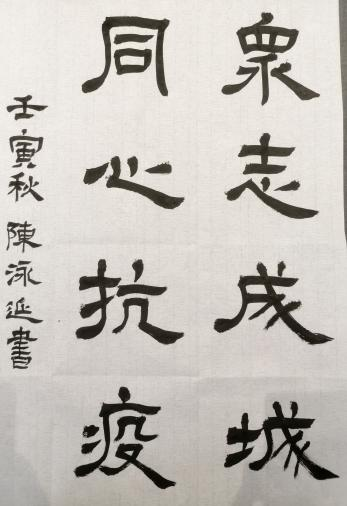 眾志成城
同心抗疫
壬寅秋陳泳延書